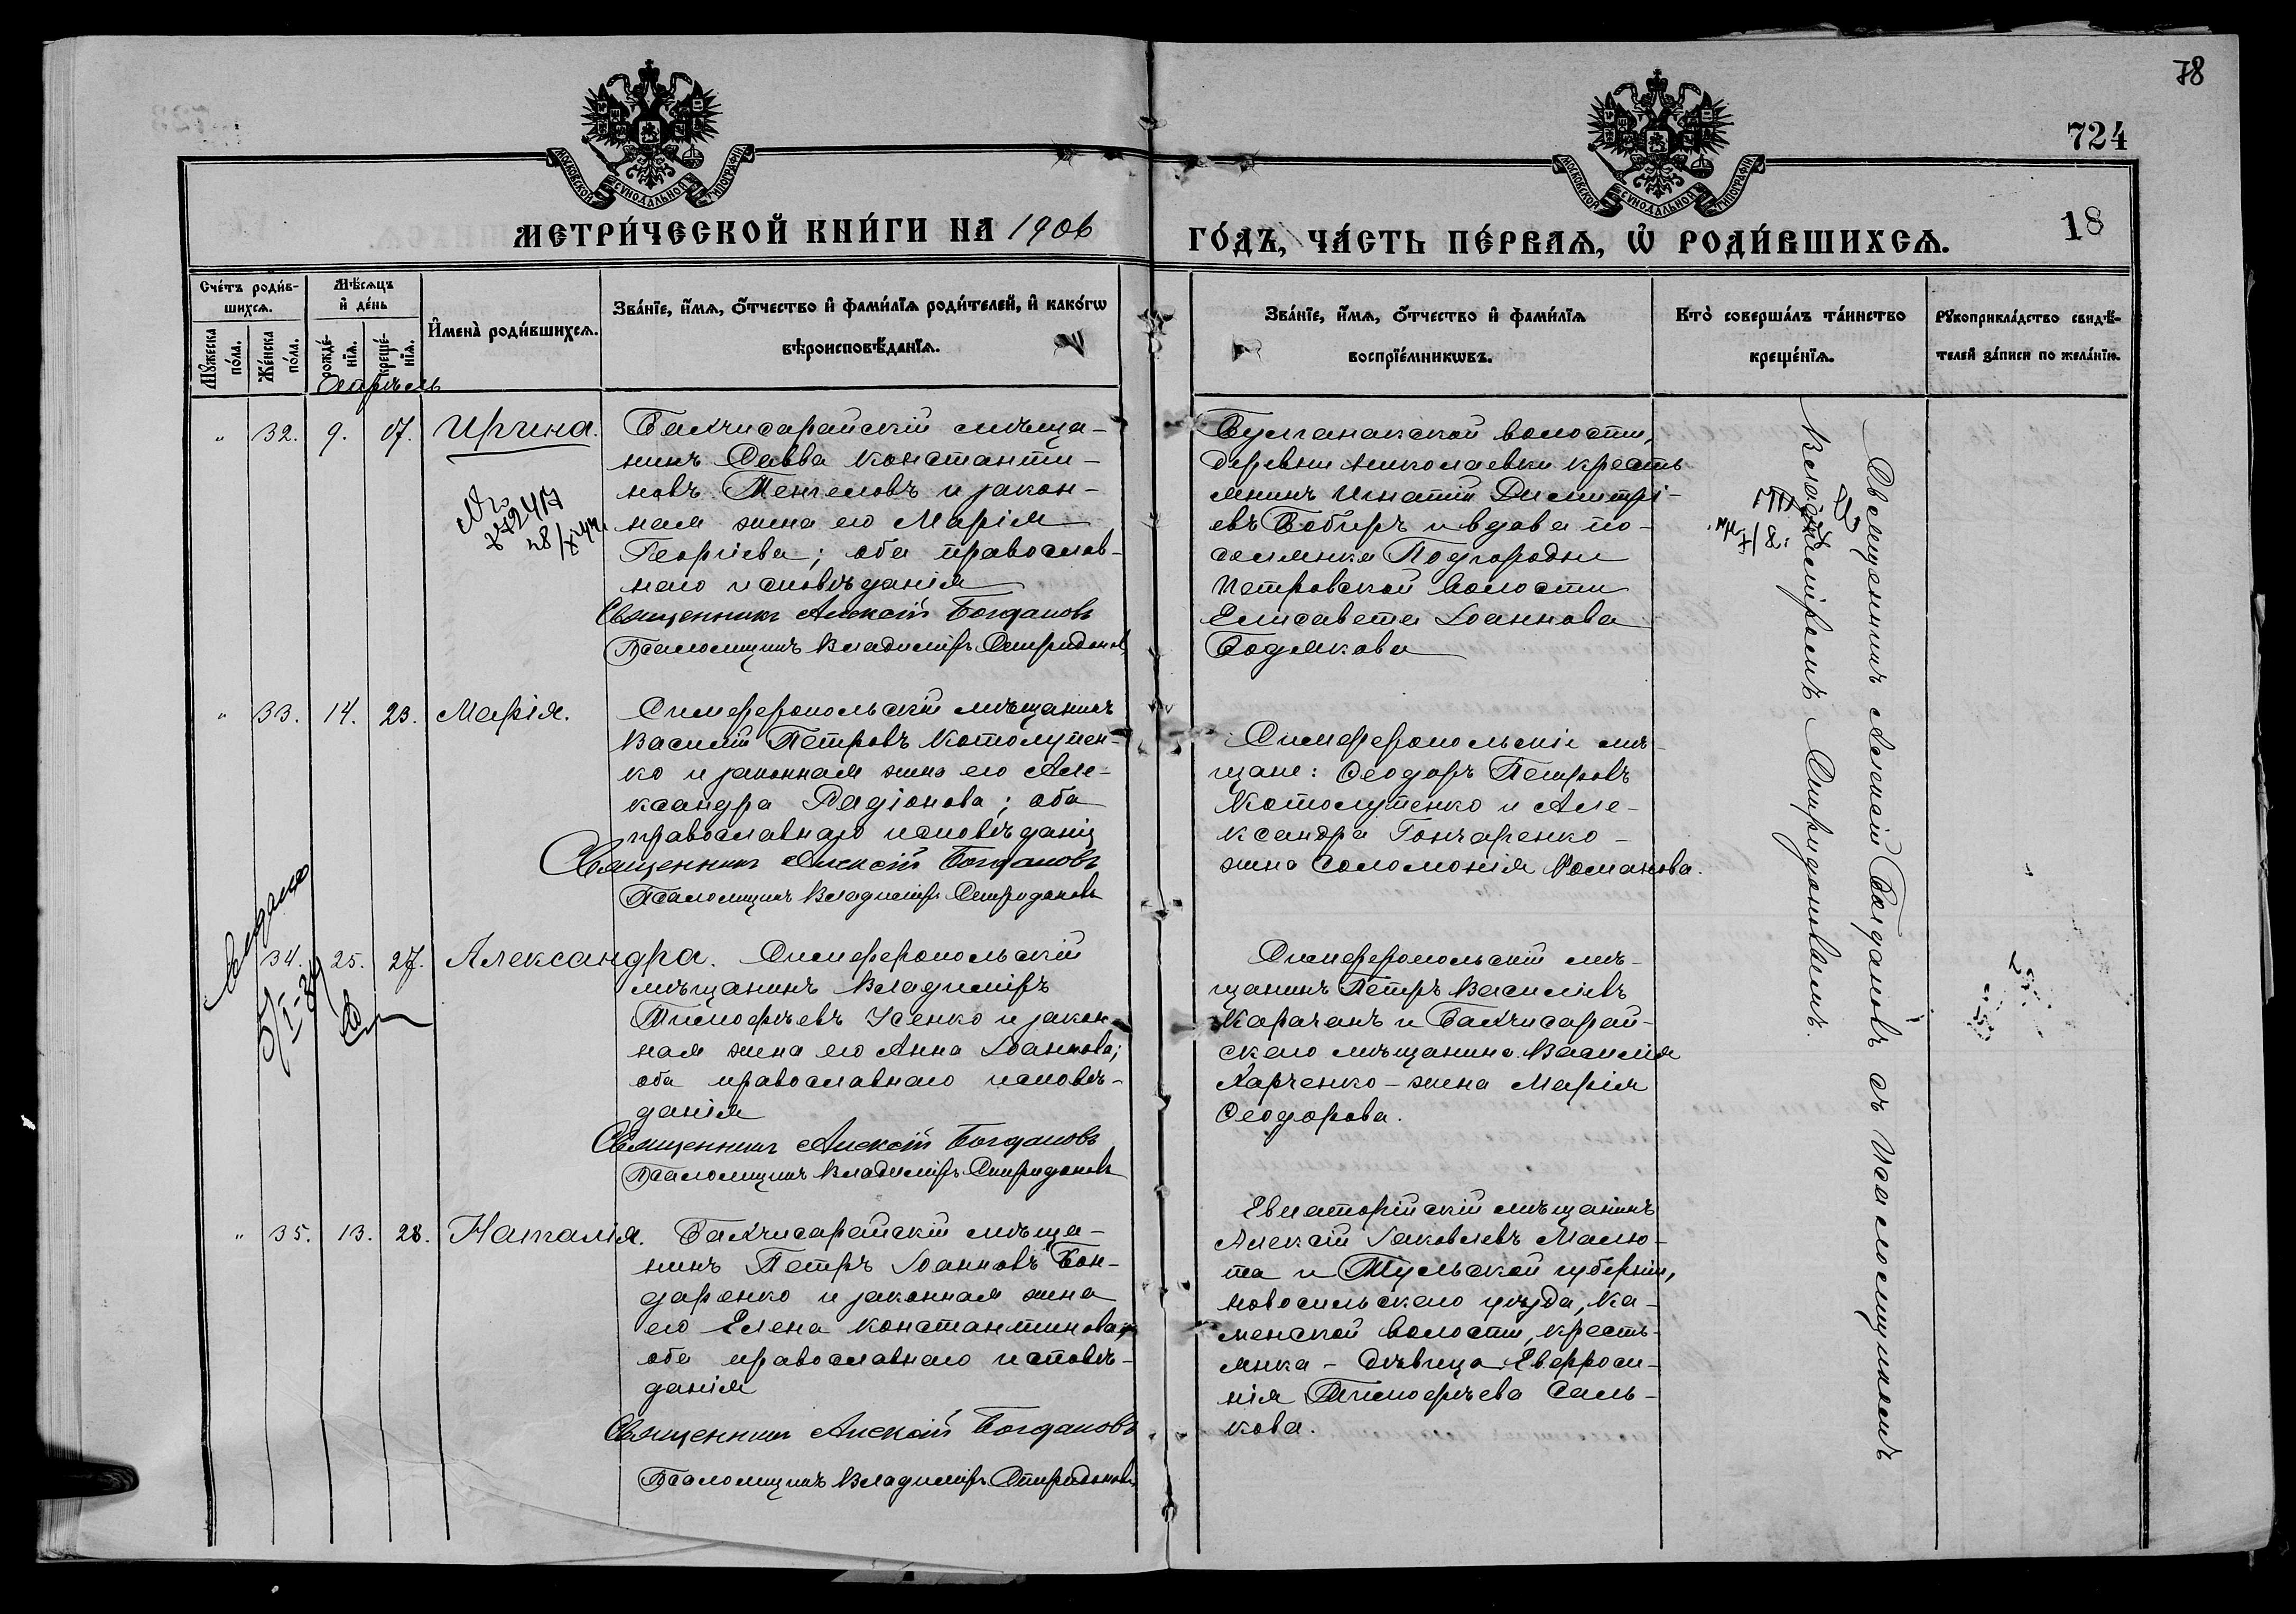 78
724
18
МОСКОВСКОЙ СѴНОДАЛЬНОЙ ТИПОГРАФІИ
МОСКОВСКОЙ СѴНОДАЛЬНОЙ ТИПОГРАФІИ
МЕТРИ́ЧЕСКОЙ КНИ́ГИ НА 1906
ГО́ДЪ, ЧА́СТЬ ПЕ́РВАѦ, Ѡ҆ РОДИ́ВШИХСѦ.
Сче́тъ роди́в-
шихсѧ.
Мꙋ́жеска по́ла.
Же́нска по́ла.
Мѣ́сѧцъ
и҆ де́нь
рожде́-нїѧ.
креще́-нїѧ.
И҆мена̀ роди́вшихсѧ.
Зва́нїе, и҆́мѧ, ѻ҆́тчество и҆ фами́лїѧ роди́телей, и҆ како́гѡ
вѣроисповѣ́данїѧ.
Зва́нїе, и҆́мѧ, ѻ҆́тчество и҆ фами́лїѧ
воспрїе́мникѡвъ.
Кто̀ соверша́лъ та́инство
креще́нїѧ.
Рꙋкоприкла́дство свидѣ́-
телей за́писи по жела́нїю.
Апрѣль
" 32. 9. 17. Ирина.
Бахчисарайскій мѣща-
нинъ Савва Константи-
новъ Менгеловъ и закон-
ная жена его Марія
Георгіева; оба православ-
наго исповѣданія
Священникъ Алексій Богдановъ
Псаломщикъ Владиміръ Спиридоновъ
Булганакской волости,
деревни Николаевки кресть
янинъ Игнатій Димитрі-
евъ Бобиръ и вдова по-
селянка Подгородне
Петровской волости
Елисавета Іоаннова
Бодякова
" 33. 14. 23. Марія.
Симферопольскій мѣщанинъ
Василій Петровъ Котолупен-
ко и законная жена его Але-
ксандра Радіонова; оба
православнаго исповѣданія
Священникъ Алексій Богдановъ
Псаломщикъ Владиміръ Спиридоновъ
Симферопольскіе мѣ-
щане: Ѳеодоръ Петровъ
Котолупенко и Але-
ксандра Гончаренко -
жена Соломонія Романова.
34. 25. 27. Александра.
Симферопольскій
мѣщанинъ Владиміръ
Тимоѳѣевъ Усенко и закон
ная жена его Анна Іоаннова;
оба православнаго исповѣ-
данія
Священникъ Алексій Богдановъ
Псаломщикъ Владиміръ Спиридоновъ
Симферопольскій мѣ-
щанинъ Петръ Василіевъ
Карачанъ и Бахчисарай-
скаго мѣщанина Василія
Харченко - жена Марія
Ѳеодорова.
" 35. 13. 28. Наталія.
Бахчисарайскій мѣща-
нинъ Петръ Іоанновъ Бон-
даренко и законная жена
его Елена Константинова;
оба православнаго исповѣ-
данія
Священникъ Алексій Богдановъ
Псаломщикъ Владиміръ Спиридоновъ
Евпаторійскій мѣщанинъ
Алексій Іаковлевъ Малю-
та и Тульской губерніи,
Новосильскаго уѣзда, Ка-
менской волости, кресть-
янка - дѣвица Евфроси-
нія Тимоѳѣева Саль-
кова.
Священникъ Алексій Богдановъ съ псаломщикомъ
Владиміромъ Спиридоновымъ